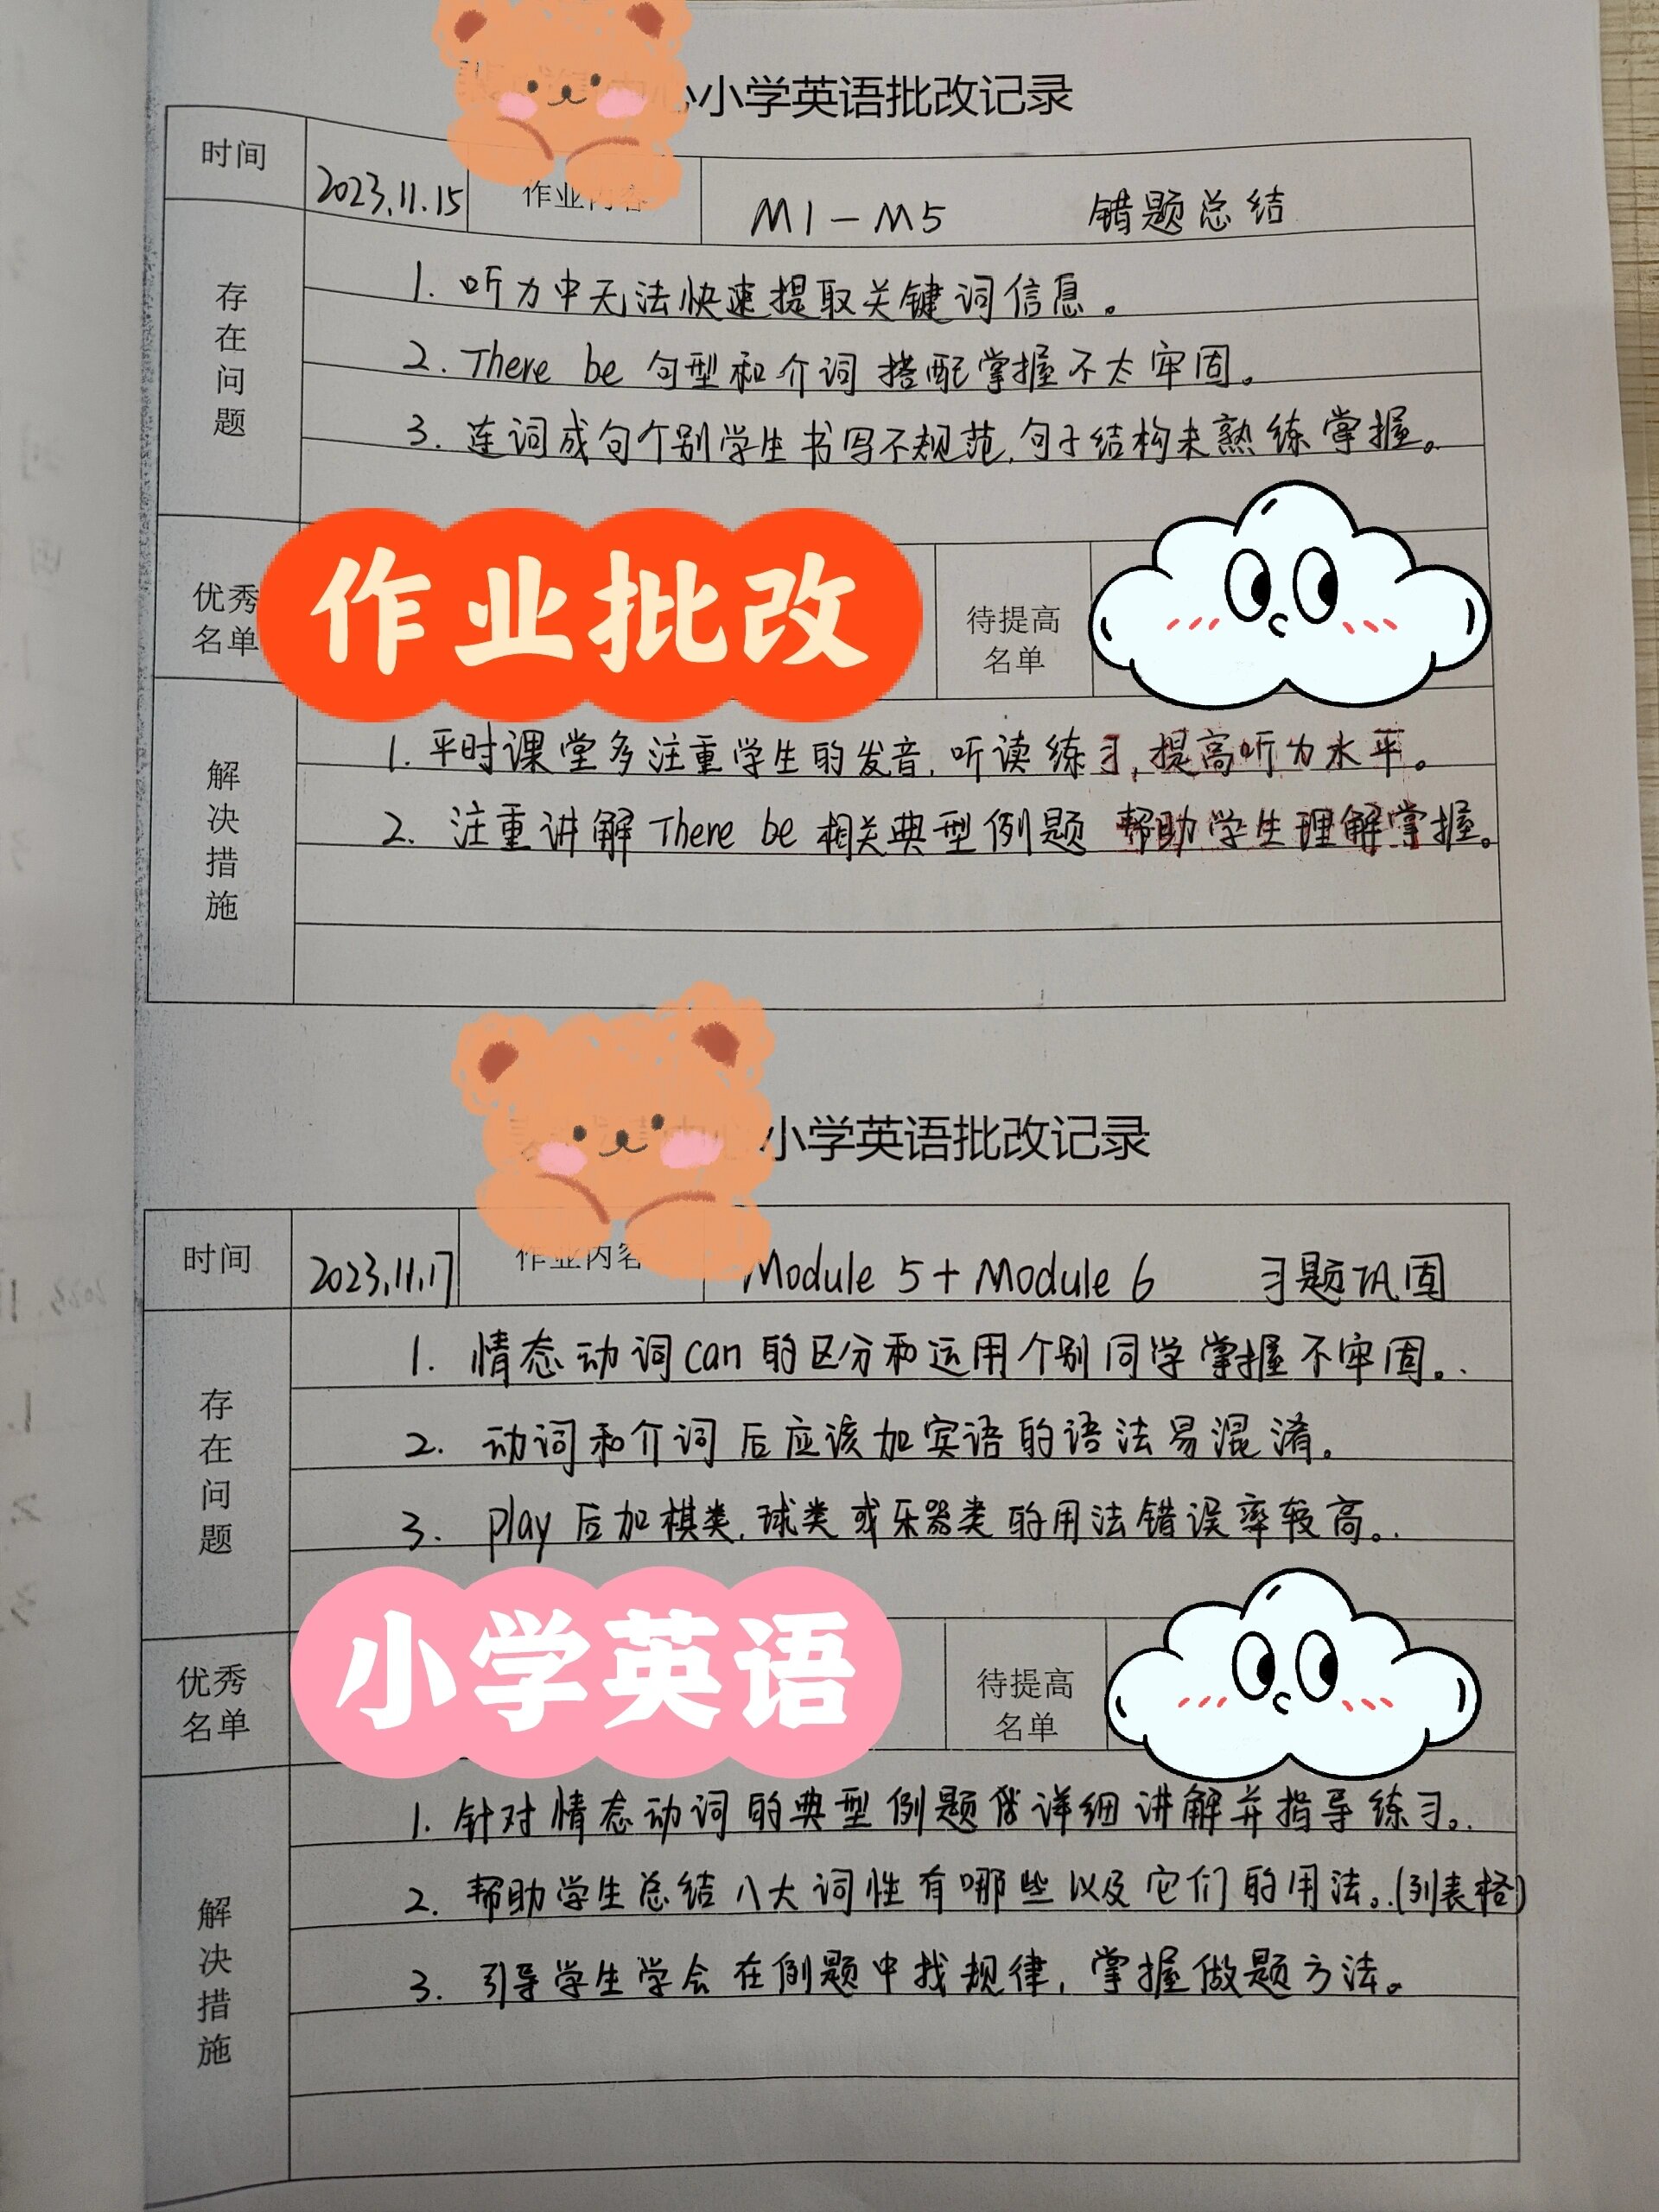 心小学英语批改记录
时间 2023.11.15 作业内容 M1-M5 错题总结
存在问题
1. 听力中无法快速提取关键词信息。
2. There be 句型和介词搭配掌握不太牢固。
3. 连词成句个别学生书写不规范,句子结构未熟练掌握。
优秀名单 作业批改 待提高名单
解决措施
1. 平时课堂多注重学生的发音,听读练习,提高听力水平。
2. 注重讲解 There be 相关典型例题 帮助学生理解掌握。
小学英语批改记录
时间 2023.11.17 作业内容 Module 5+Module 6 习题巩固
存在问题
1. 情态动词can的区分和运用个别同学掌握不牢固。
2. 动词和介词后应该加宾语的语法易混淆。
3. play后加棋类,球类或乐器类的用法错误率较高。
优秀名单 小学英语 待提高名单
解决措施
1. 针对情态动词的典型例题 详细讲解并指导练习。
2. 帮助学生总结八大词性有哪些以及它们的用法。(列表格)
3. 引导学生学会在例题中找规律,掌握做题方法。